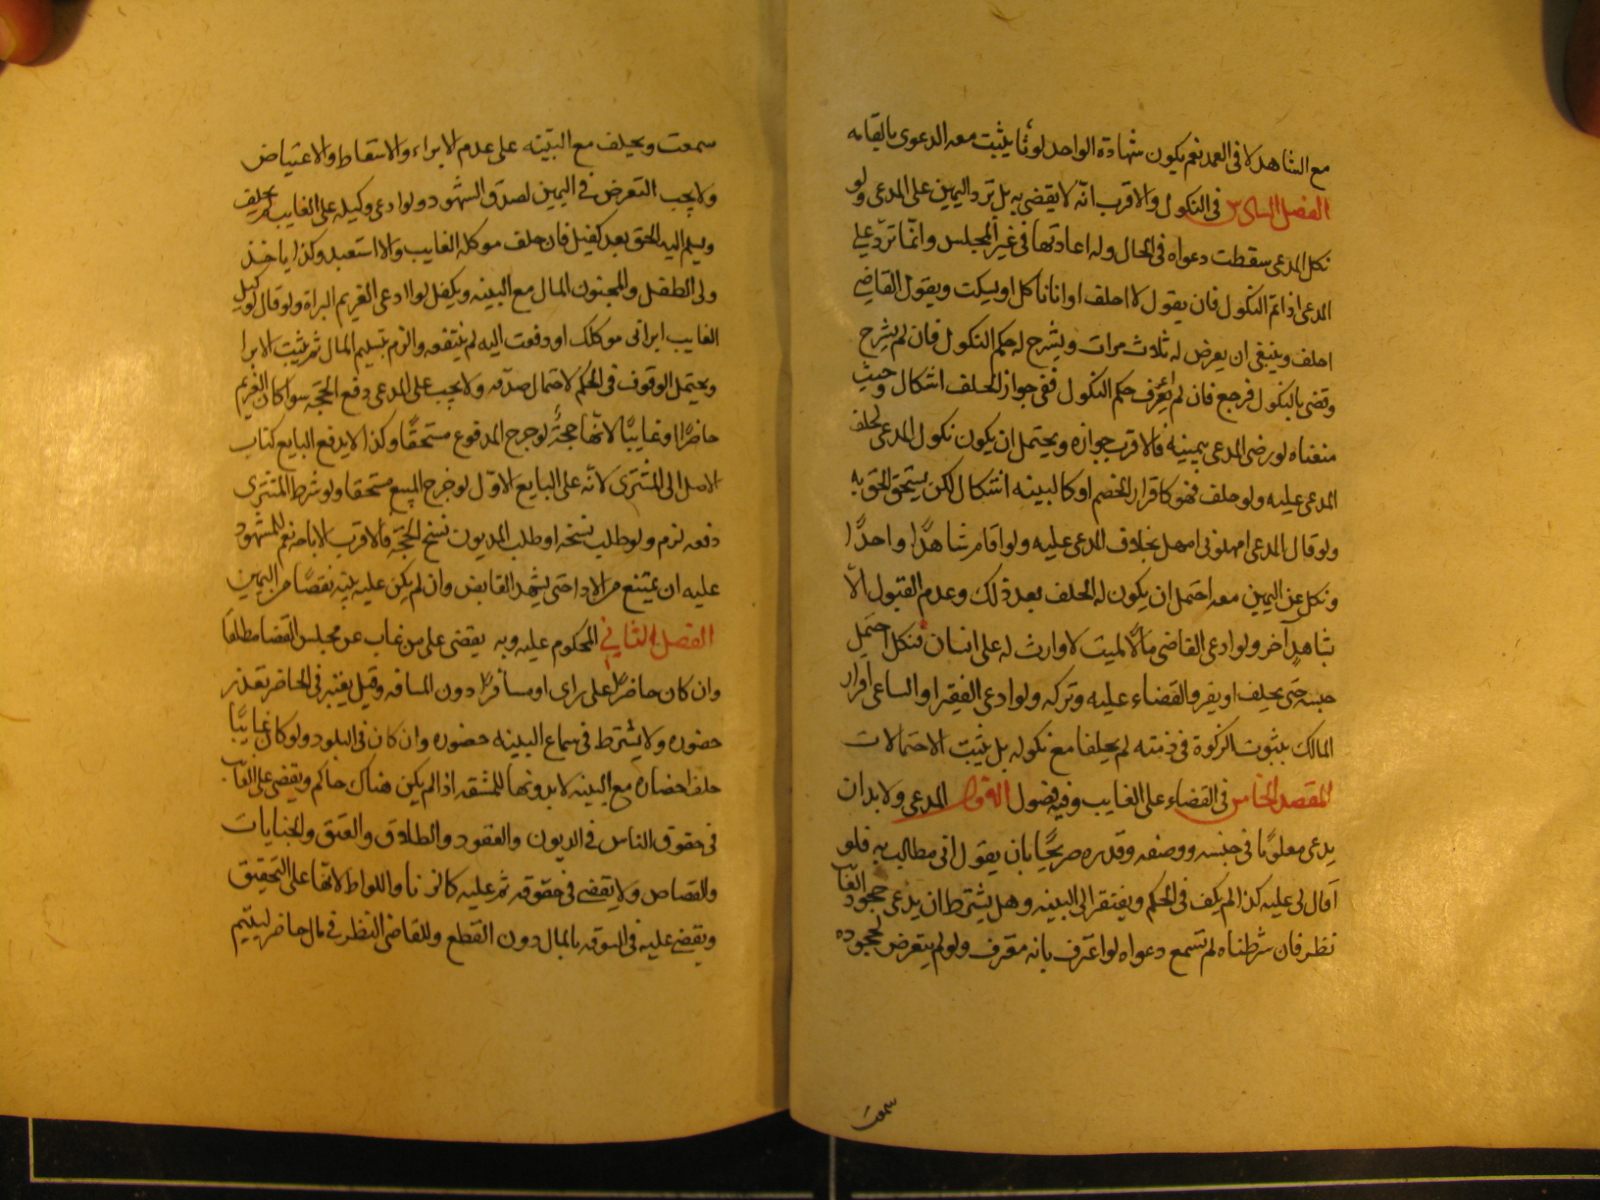 مع الشاهد لا فى العمد نعم يكون شهادة الواحد لوثا يثبت معه الدعوى بالقسامه
الفصل السادس فى النكول والاقرب انه لا يقضى به بل ترد اليمين على المدعى ولو
نكل المدعى سقطت دعواه فى الحال وله اعادتها فى غير المجلس وانما ترد على
المدعى اذا تم النكول فان يقول لا احلف او انا ناكل او يسكت ويقول القاضى
احلف وينبغى ان يعرض له ثلاث مرات ويشرح له حكم النكول فان لم يشرح
وقضى بالنكول فرجع فان لم يعرف حكم النكول ففى جواز الحلف اشكال وحيث
منعناه لو رضى المدعى بيمينه فالاقرب جوازه ويحتمل ان يكون نكول المدعى لحلف
المدعى عليه ولو حلف فهو كاقرار الخصم او كالبينه اشكال لكن يستحق الحق به
ولو قال المدعى امهلونى امهل بخلاف المدعى عليه ولو اقام شاهدًا واحدًا
ونكل عن اليمين معه احتمل ان يكون له الحلف بعد ذلك وعدم القبول الا
بشاهد آخر ولو ادعى القاضى مالًا لميت لا وارث له على انسان فنكل احتمل
حبسه حتى يحلف او يقر والقضاء عليه وتركه ولو ادعى الفقير او الساعى اقرار
المالك بثبوت الزكوة فى ذمته لم يحلفا مع نكوله بل يثبت الاحتمالات
المقصد الخامس فى القضاء على الغايب وفيه فصول الاول المدعى ولا بد ان
يدعى معلومًا فى جنسه ووصفه وقدره صريحًا بان يقول انى مطالب به فلو
قال لى عليه كذا لم يكف فى الحكم ويفتقر الى البينه وهل يشترط ان يدعى جحود الغا
نظر فان شرطناه لم تسمع دعواه لو اعترف بانه معترف ولو لم يتعرض لجحوده
سمعت
سمعت ويحلف مع البينه على عدم الابراء والاسقاط والاعتياض
ولا يجب التعرض فى اليمين لصدق الشهود ولو ادعى وكيله على الغايب لم يحلف
ويسلم اليه الحق بعد كفيل فان حلف موكله الغايب والا استعيد وكذا ياخذ
ولى الطفل والمجنون المال مع البينه ويكفل لو ادعى الغريم البراة ولو قال لوكيل
الغايب ابرانى موكلك او دفعت اليه لم ينتفعه والزم بتسليم المال ثم يثبت الابرا
ويحتمل الوقوف فى الحكم لاحتمال صدقه ولا يجب على المدعى دفع الحجه سوا كان الغريم
حاضرًا او غايبًا لانها حجةٌ لو خرج المدفوع مستحقًا وكذا لا يدفع البايع كتاب
الاصل الى المشترى لانه على البايع الاول لو خرج المبيع مستحقا ولو شرط المشترى
دفعه لزم ولو طلب نسخه او طلب المديون نسخ الحجه فالاقرب الاباحه نعم للمشهود
عليه ان يمتنع من الاداء حتى يشهد القابض وان لم يكن عليه بينه نقصًا من اليمين
الفصل الثانى المحكوم عليه وبه يقضى على من غاب عن مجلس القضا مطلقا
وان كان حاضرًا على راى او مسافرًا دون المسافه وقيل يعتبر فى الحاضر تعذر
حضوره ولا يشترط فى سماع البينه حضوره وان كان فى البلد ولو كان غايبًا
حلف احضاره مع البينه لا بدونها للمشقه اذا لم يكن هناك حاكم ويقضى على الغايب
فى حقوق الناس فى الديون والعقود والطلاق والعتق والجنايات
والقصاص ولا يقضى فى حقوقه ثم عليه كالزنا واللواط لانها على التحقيق
ويقضى عليه فى السرقه بالمال دون القطع وللقاضى النظر فى مال حاضر ليتيم